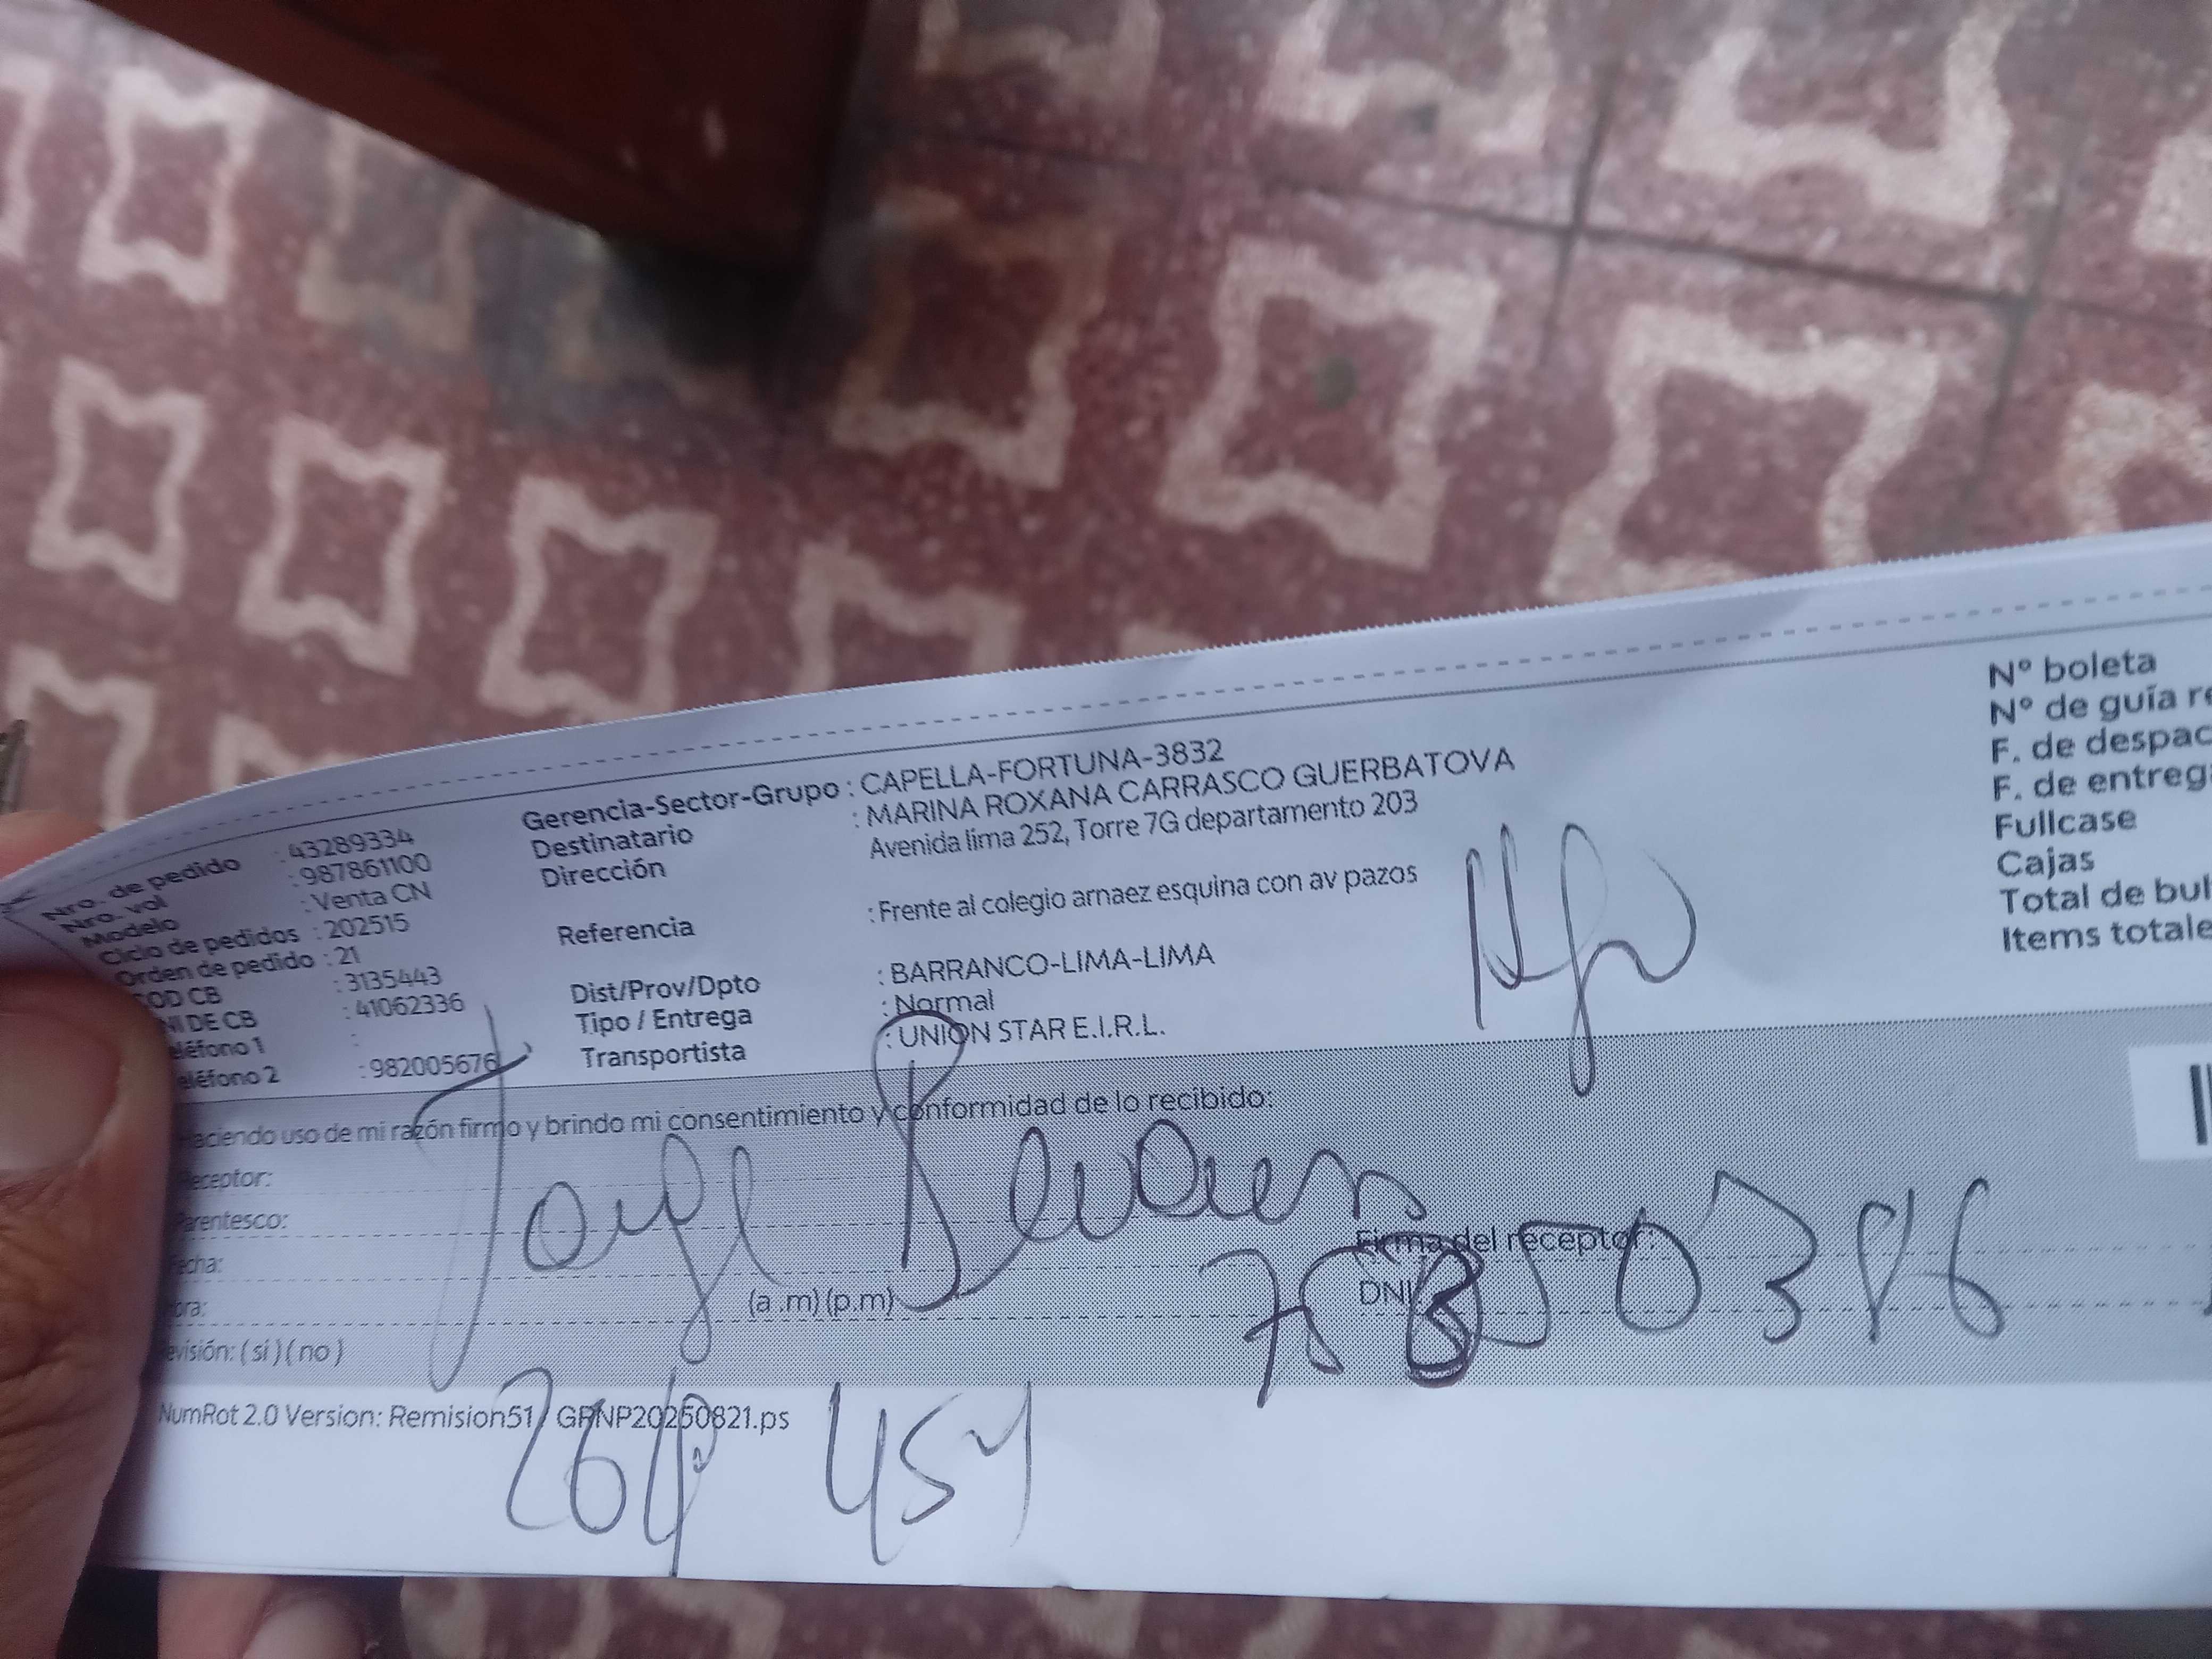 Nro. de pedido : 43289334
Nro. vol : 987861100
Modelo : Venta CN
Ciclo de pedidos : 202515
Orden de pedido : 21
COD CB : 3135443
NI DE CB : 41062336
eléfono 1 :
eléfono 2 : 982005676
Gerencia-Sector-Grupo : CAPELLA-FORTUNA-3832
Destinatario : MARINA ROXANA CARRASCO GUERBATOVA
Dirección Avenida lima 252, Torre 7G departamento 203
Referencia : Frente al colegio arnaez esquina con av pazos
Dist/Prov/Dpto : BARRANCO-LIMA-LIMA
Tipo / Entrega : Normal
Transportista : UNION STAR E.I.R.L.
N° boleta
N° de guía re
F. de despac
F. de entrega
Fullcase
Cajas
Total de bul
Items totale
aciendo uso de mi razón firmo y brindo mi consentimiento y conformidad de lo recibido:
Receptor:
Parentesco:
echa:
ora: (a .m) (p.m)
evisión: ( sí ) ( no )
Jorge
Firma del receptor:
DNI
NumRot 2.0 Version: Remision51/ GRNP20250821.ps